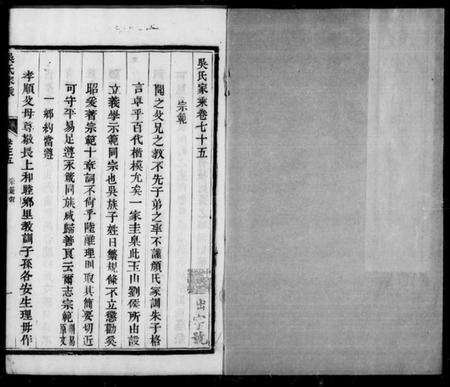 吳氏家乘卷七十五
宗範
聞之父兄之教不先子弟之率不謹顏氏家訓朱子格
言卓乎百代楷模尤矣一家圭臬此玉山劉侯所由設
立義學示範同宗也吳族子姓日繁規條不立懲勸奚
昭爰著宗範十章詞不尚乎陸離理則取其簡要切近
可守平易足遵求咸同族咸歸善良云爾志宗範
一鄉約當遵
孝順父母尊敬長上和睦鄉里教訓子孫各安生理毋作
吳氏家乘
出字號